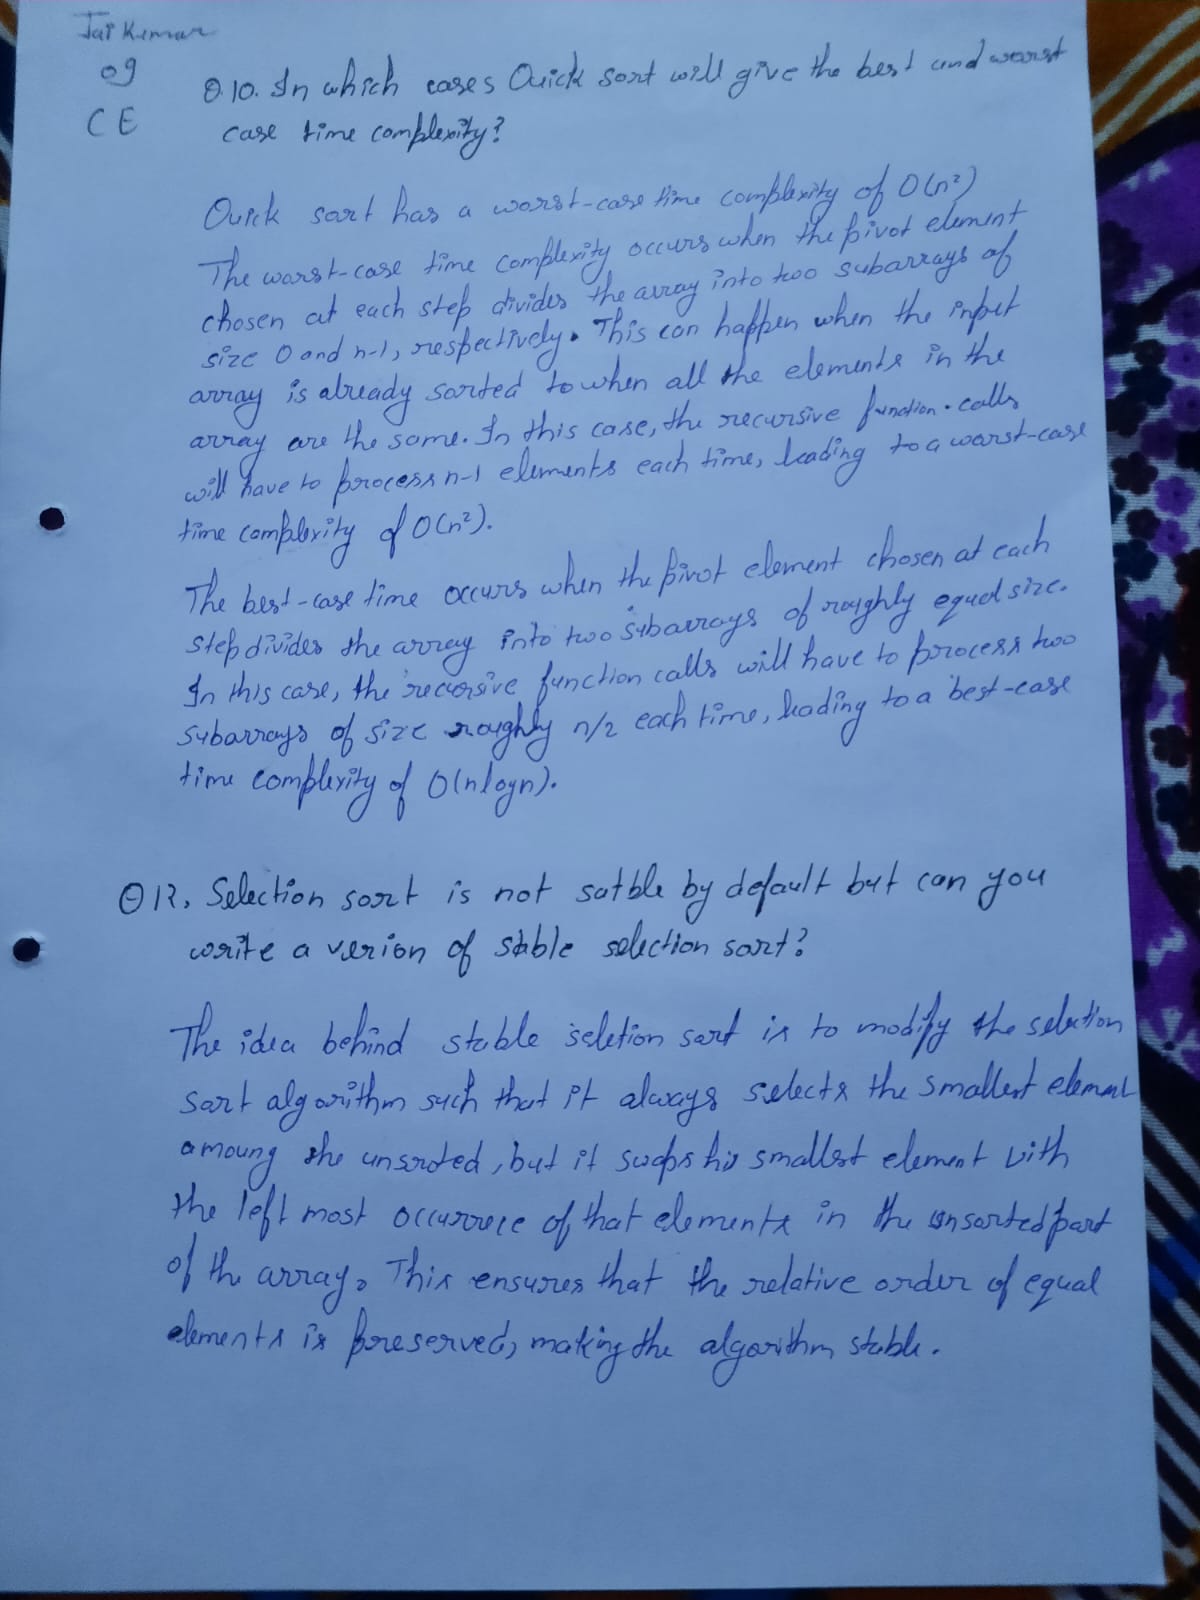 Jai Kumar
09
CE
Q.10. In which cases Quick sort will give the best and worst
case time complexity?
Quick sort has a worst-case time complexity of O(n²)
The worst-case time complexity occurs when the pivot element
chosen at each step divides the array into two subarrays of
size 0 and n-1, respectively. This can happen when the input
array is already sorted to when all the elements in the
array are the same. In this case, the recursive function calls
will have to process n-1 elements each time, leading to a worst-case
time complexity of O(n²).
The best-case time occurs when the pivot element chosen at each
step divides the array into two subarrays of roughly equal size.
In this case, the recursive function calls will have to process two
subarrays of size roughly n/2 each time, leading to a best-case
time complexity of O(nlogn).
Q12. Selection sort is not satble by default but can you
write a verion of stable selection sort?
The idea behind stable seletion sort is to modify the selection
sort algorithm such that it always selects the smallest element
amoung the unsroted, but it swaps his smallest element with
the left most occurrece of that elements in the unsorted part
of th array. This ensures that the relative order of equal
elements is preserved, making the algorithm stable.